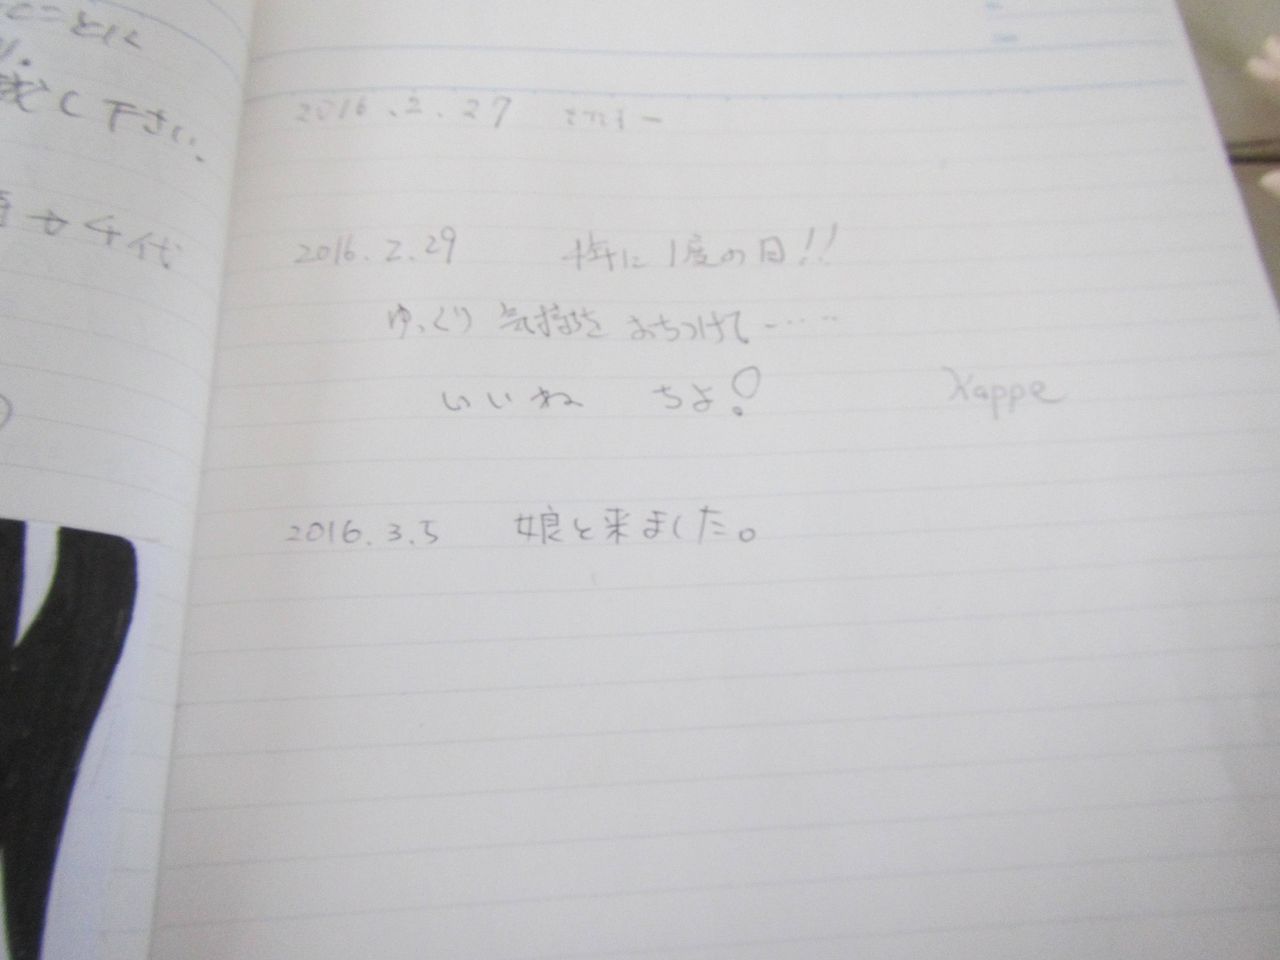 ことに
い。
試して下さい。
千代
2016.2.27
2016.2.29 4年に1度の日!!
ゆっくり 気持ちを おちつけて……
いいね ちよ!
Kappe
2016.3.5 娘と来ました。